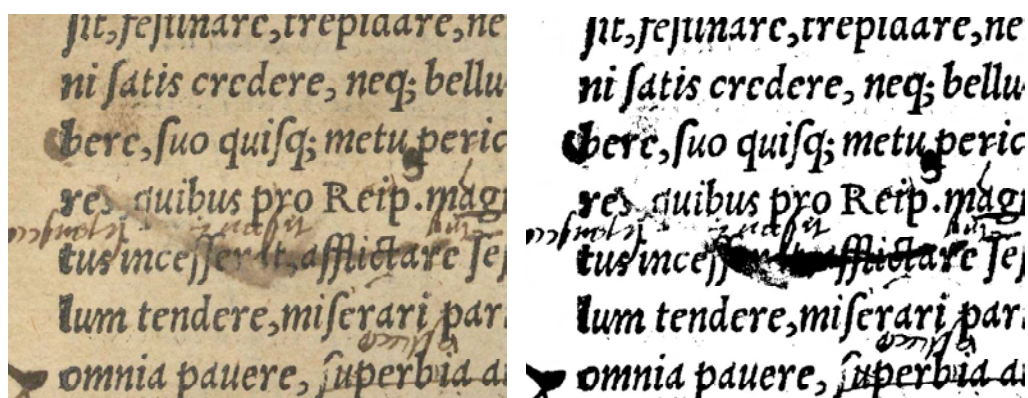 ſit, feſtinare, trepidare, ne
ni ſatis credere, neq; bellu-
bere, ſuo quiſq; metu peric
res, quibus pro Reip. mag
tus inceſſerat, afflictare ſeſ
lum tendere, miſerari par
omnia pauere, ſuperbia a
ſit, feſtinare, trepidare, ne
ni ſatis credere, neq; bellu
bere, ſuo quiſq; metu peric
res quibus pro Reip. mag
tus inceſſ afflictare ſeſ
lum tendere, miſerari par
omnia pauere, ſuperbia a